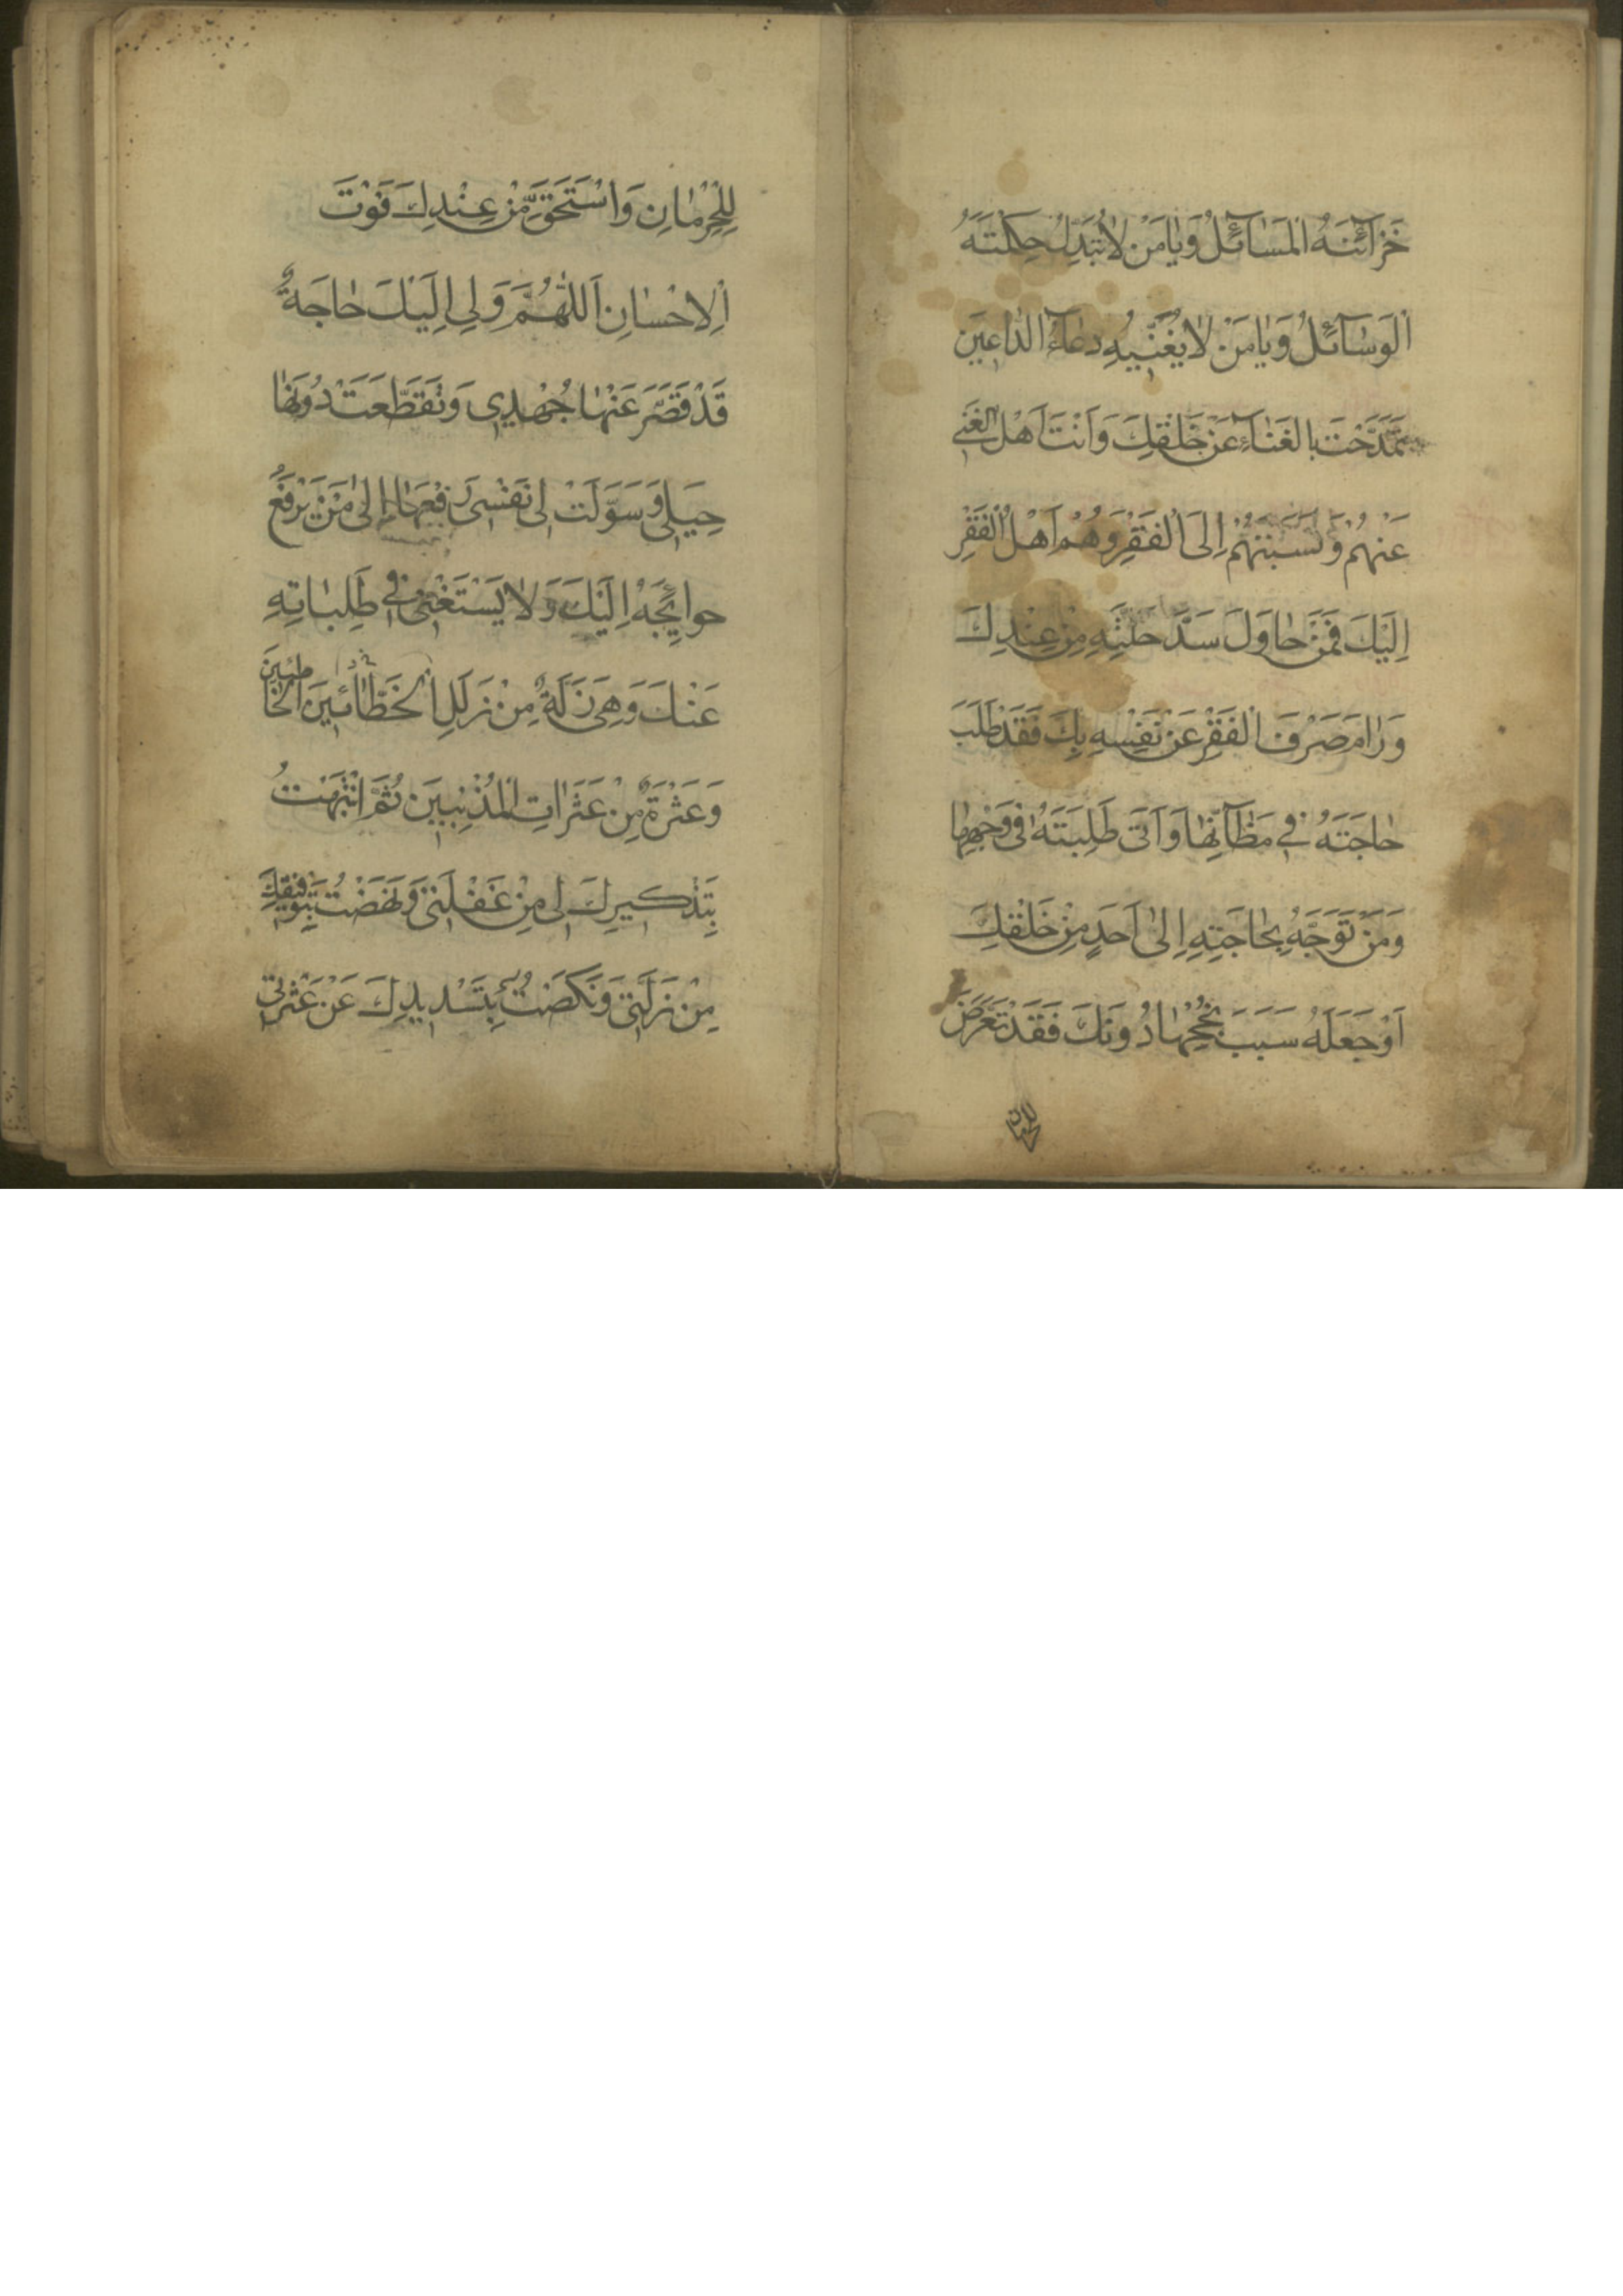 خَزَآئِنَهُ الْمَسَآئِلُ وَيَا مَنْ لَا تُبَدِّلُ حِكْمَتَهُ
الْوَسَآئِلُ وَيَا مَنْ لَا يُعَنِّيهِ دُعَآءُ الدَّاعِينَ
تَمَدَّحْتَ بِالْغَنَآءِ عَنْ خَلْقِكَ وَاَنْتَ اَهْلُ الْغِنَى
عَنْهُمْ وَنَسَبْتَهُمْ اِلَى الْفَقْرِ وَهُمْ اَهْلُ الْفَقْرِ
اِلَيْكَ فَمَنْ حَاوَلَ سَدَّ خَلَّتِهِ مِنْ عِنْدِكَ
وَرَامَ صَرْفَ الْفَقْرِ عَنْ نَفْسِهِ بِكَ فَقَدْ طَلَبَ
حَاجَتَهُ فِي مَظَآنِّهَا وَاَتَى طَلِبَتَهُ فِي وَجْهِهَا
وَمَنْ تَوَجَّهَ بِحَاجَتِهِ اِلَى اَحَدٍ مِنْ خَلْقِكَ
اَوْ جَعَلَهُ سَبَبَ نُجْحِهَا دُونَكَ فَقَدْ تَعَرَّضَ
للحرمان
لِلْحِرْمَانِ وَاسْتَحَقَّ مِنْ عِنْدِكَ فَوْتَ
الْاِحْسَانِ اَللّٰهُمَّ وَلِي اِلَيْكَ حَاجَةٌ
قَدْ قَصَّرَ عَنْهَا جُهْدِي وَتَقَطَّعَتْ دُونَهَا
حِيَلِي وَسَوَّلَتْ لِي نَفْسِي رَفْعَهَا اِلَى مَنْ يَرْفَعُ
حوائِجَهُ اِلَيْكَ وَلَا يَسْتَغْنِي فِي طَلِبَاتِهِ
عَنْكَ وَهِيَ زَلَّةٌ مِنْ زَلَلِ الْخَطَّائِينَ الْخَاطِئِينَ
وَعَثْرَةٌ مِنْ عَثَرَاتِ الْمُذْنِبِينَ ثُمَّ انْتَبَهْتُ
بِتَذْكِيرِكَ لِي مِنْ غَفْلَتِي وَنَهَضْتُ بِتَوْفِيقِكَ
مِنْ زَلَّتِي وَنَكَصْتُ بِتَسْدِيدِكَ عَنْ عَثْرَتِي